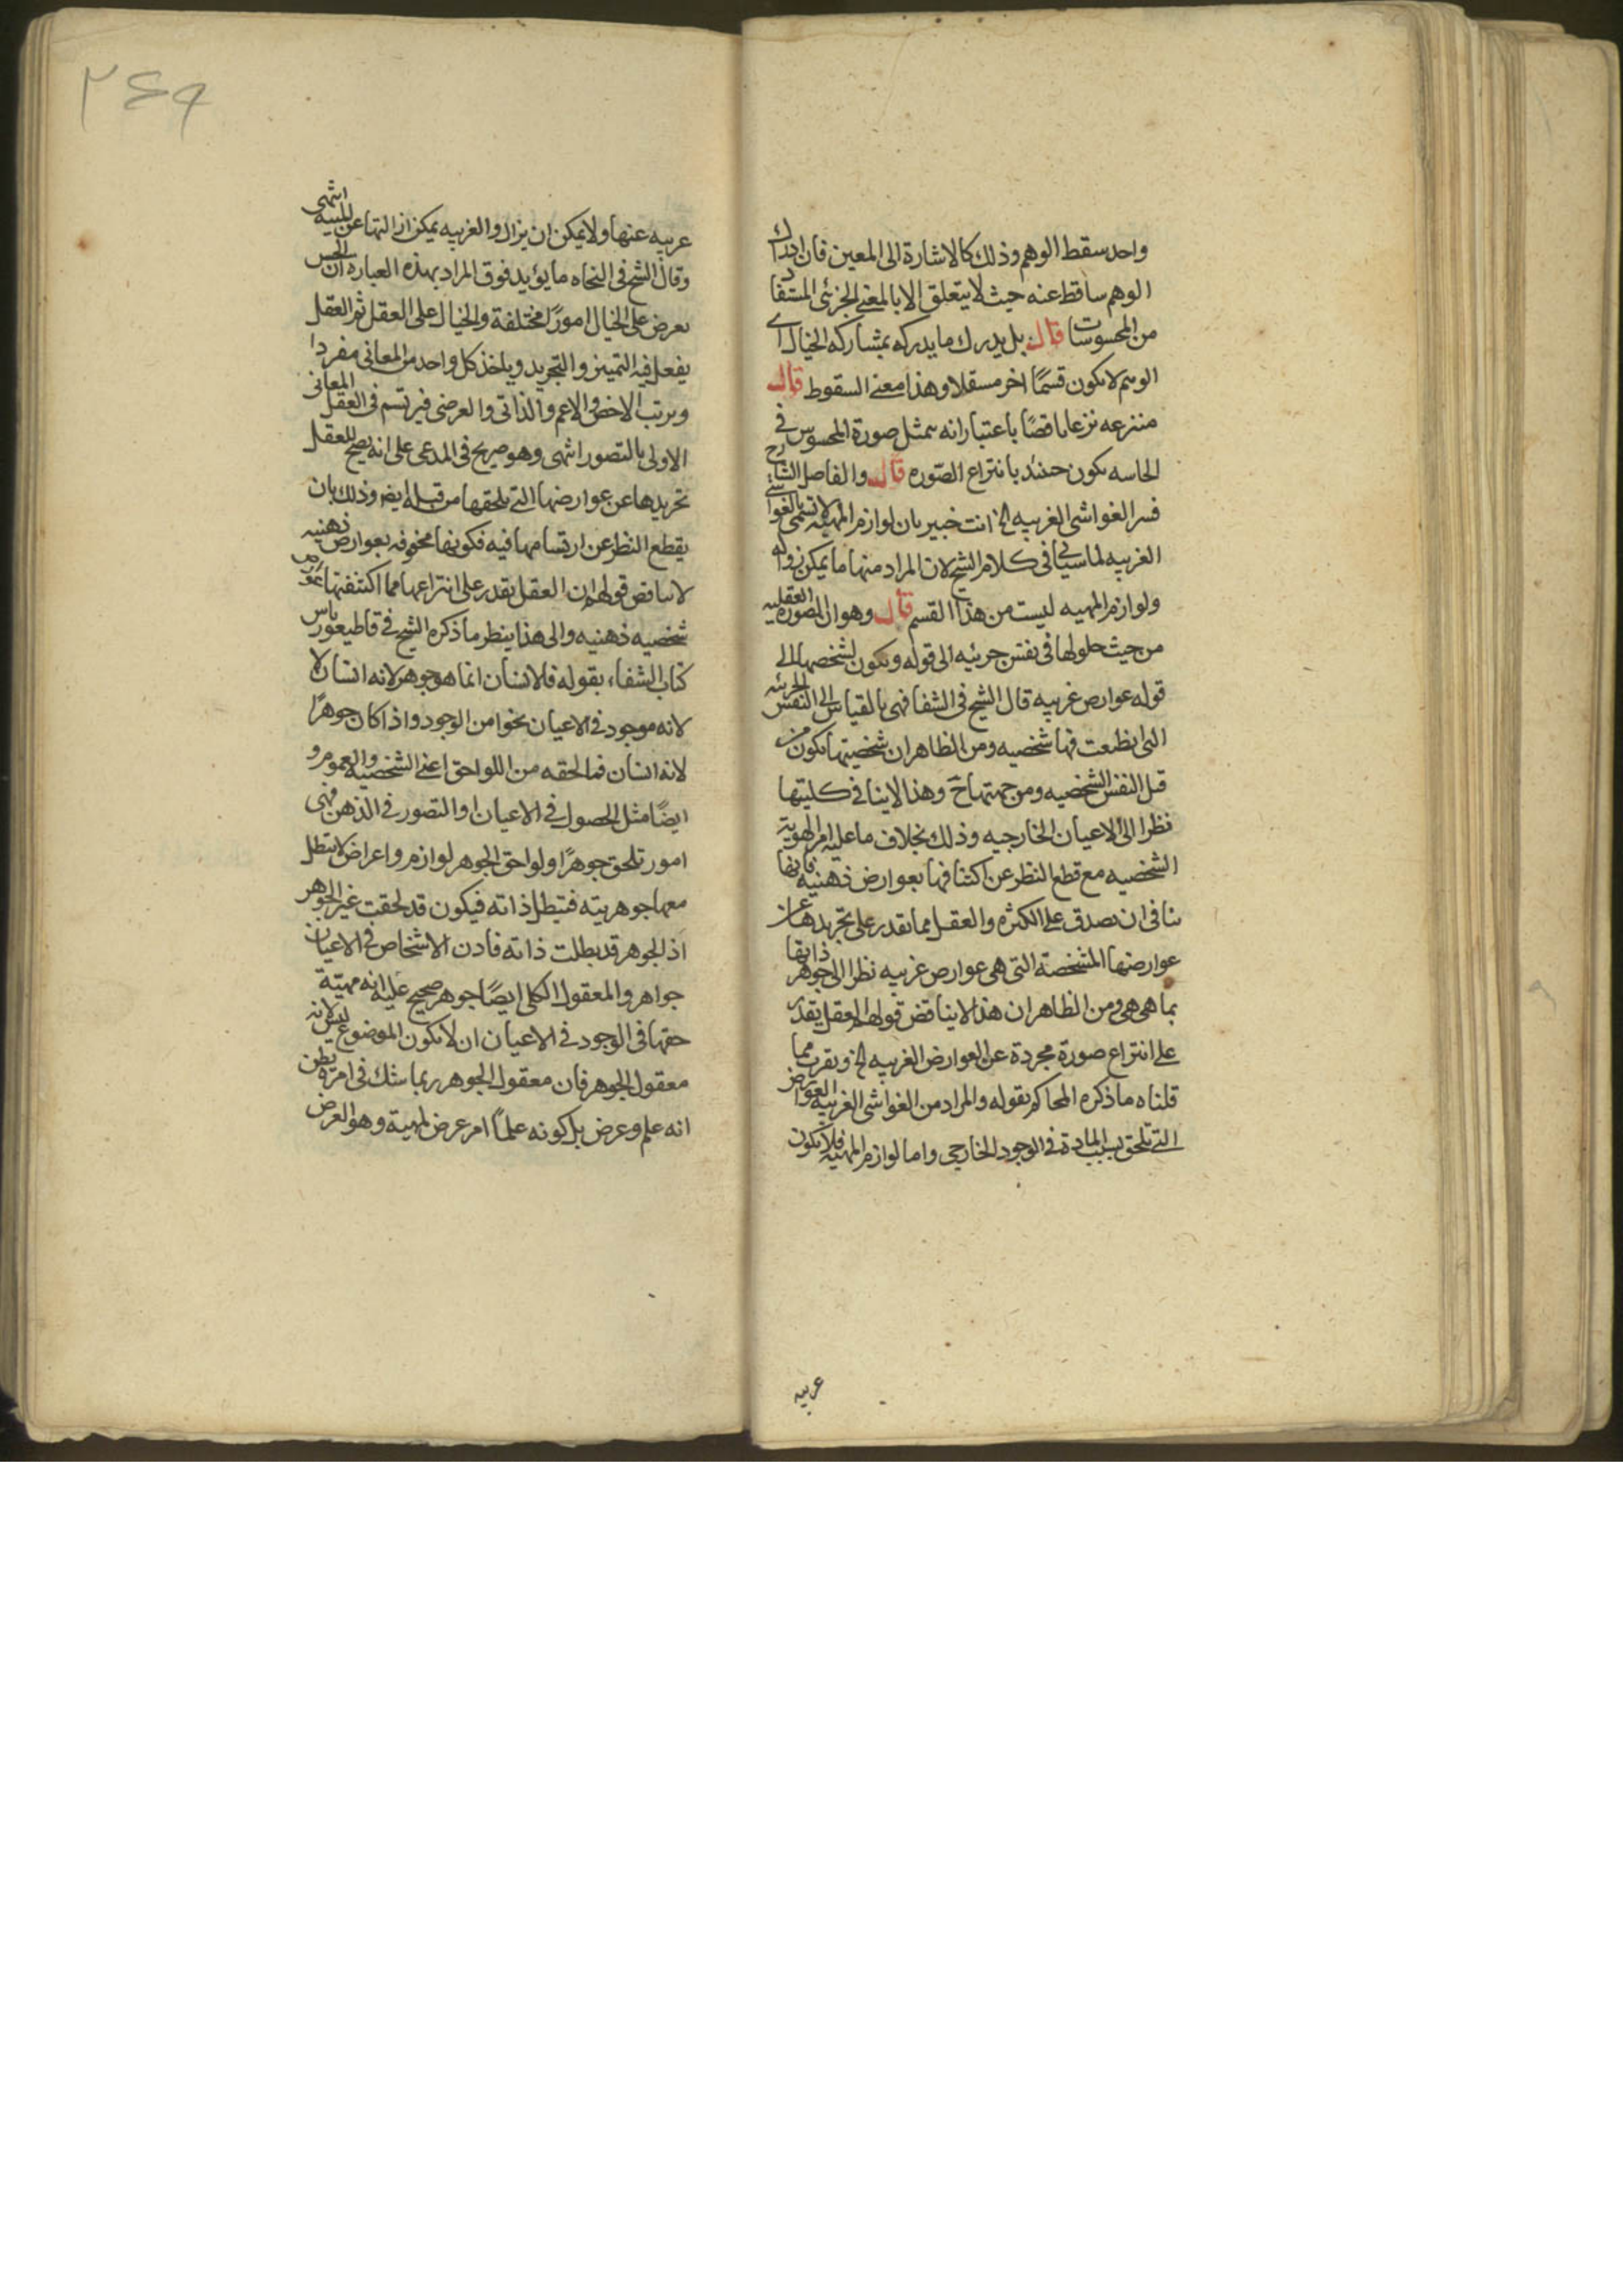 واحد سقط الوهم وذلك كالاشارة الى المعين فان ادراك
الوهم ساقط عنه حيث لا يتعلق الا بالمعنى الجزئى المستفاد
من المحسوسات قال بل يدرك ما يدركه بمشاركه الخيال اى
الوهم لا يكون قسمًا اخر مستقلا وهذا معنى السقوط قال
منتزعه نزعا ناقصًا باعتبار انه تمثل صورة المحسوس فى
الحاسه يكون حينئذ بانتزاع الصّوره قال والفاضل الشارح
فسر الغواشى الغريبه الخ انت خبير بان لوازم المهيه لا تسمى بالغواشى
الغريبه لما سيأتى فى كلام الشيخ لان المراد منها ما يمكن زواله
ولوازم المهيه ليست من هذا القسم قال وهو ان الصوره العقليه
من حيث حلولها فى نفس جزئيه الى قوله ويكون تشخصها الى
قوله عوارض غريبه قال الشيخ فى الشفا فهى بالقياس الى النفس الجزئيه
التى انطبعت فيها شخصيه ومن الظاهر ان شخصيتها يكون من
قبل النفس الشخصيه ومن جهتها ح وهذا لا ينافى كليتها
نظرا الى الاعيان الخارجيه وذلك بخلاف ما عليه امر الهوية
الشخصيه مع قطع النظر عن اكتنافها بعوارض ذهنيه فانها
تنافى ان يصدق على الكثره والعقل مما يقدر على تجريدها عن
عوارضها المشخصة التى هى عوارض غريبه نظرا الى جوهر ذاتها
بما هى هى ومن الظاهر ان هذا لا يناقض قولهم العقل يقدر
على انتزاع صورة مجردة عن العوارض الغريبه الخ ويقرب مما
قلناه ما ذكره المحاكم بقوله والمراد من الغواشى الغريبه العوارض
التى تلحق بسبب المادة فى الوجود الخارجى واما لوازم المهيه فلا يكون
غريبه
٢٤٩
غريبه عنها ولا يمكن ان يزال والغريبه يمكن ازالتها عن المهيه انتهى
وقال الشيخ فى النجاه ما يؤيد فوق المراد بهذه العباره ان الحس
يعرض على الخيال امورًا مختلفة والخيال على العقل ثم العقل
يفعل فيه التميز والتجريد وياخذ كل واحد من المعانى مفردا
ويرتب الاخص والاعم والذاتى والعرضى فيرتسم فى العقل المعانى
الاولى بالتصور انتهى وهو صريح فى المدعى على انه يصح للعقل
تجريدها عن عوارضها التى تلحقها من قبله ايضا وذلك بان
يقطع النظر عن ارتسامها فيه فكونها محفوفه بعوارض ذهنيه
لا يناقض قولهم ان العقل يقدر على انتزاعها مما اكتنفتها عوارض
شخصيه ذهنيه والى هذا ينظر ما ذكره الشيخ فى قاطيغورياس
كتاب الشفاء بقوله فالانسان انما هو جوهر لانه انسان لا
لانه موجود فى الاعيان نحوا من الوجود واذا كان جوهرًا
لانه انسان فما لحقه من اللواحق اعنى الشخصيه والعموم و
ايضًا مثل الحصول فى الاعيان او التصور فى الذهن فهى
امور تلحق جوهرًا ولواحق الجوهر لوازم واعراض لا يبطل
معها جوهريته فتبطل ذاته فيكون قد لحقت غير الجوهر
اذ الجوهر قد بطلت ذاته فاذن الاشخاص فى الاعيان
جواهر والمعقول الكلى ايضًا جوهر صحيح عليه انه مهيّة
حقها فى الوجود فى الاعيان ان لا يكون الموضوع ليس لانه
معقول الجوهر فان معقول الجوهر ربما شك فى امره فظن
انه علم وعرض بل كونه علمًا امر عرض لمهيته وهو العرض